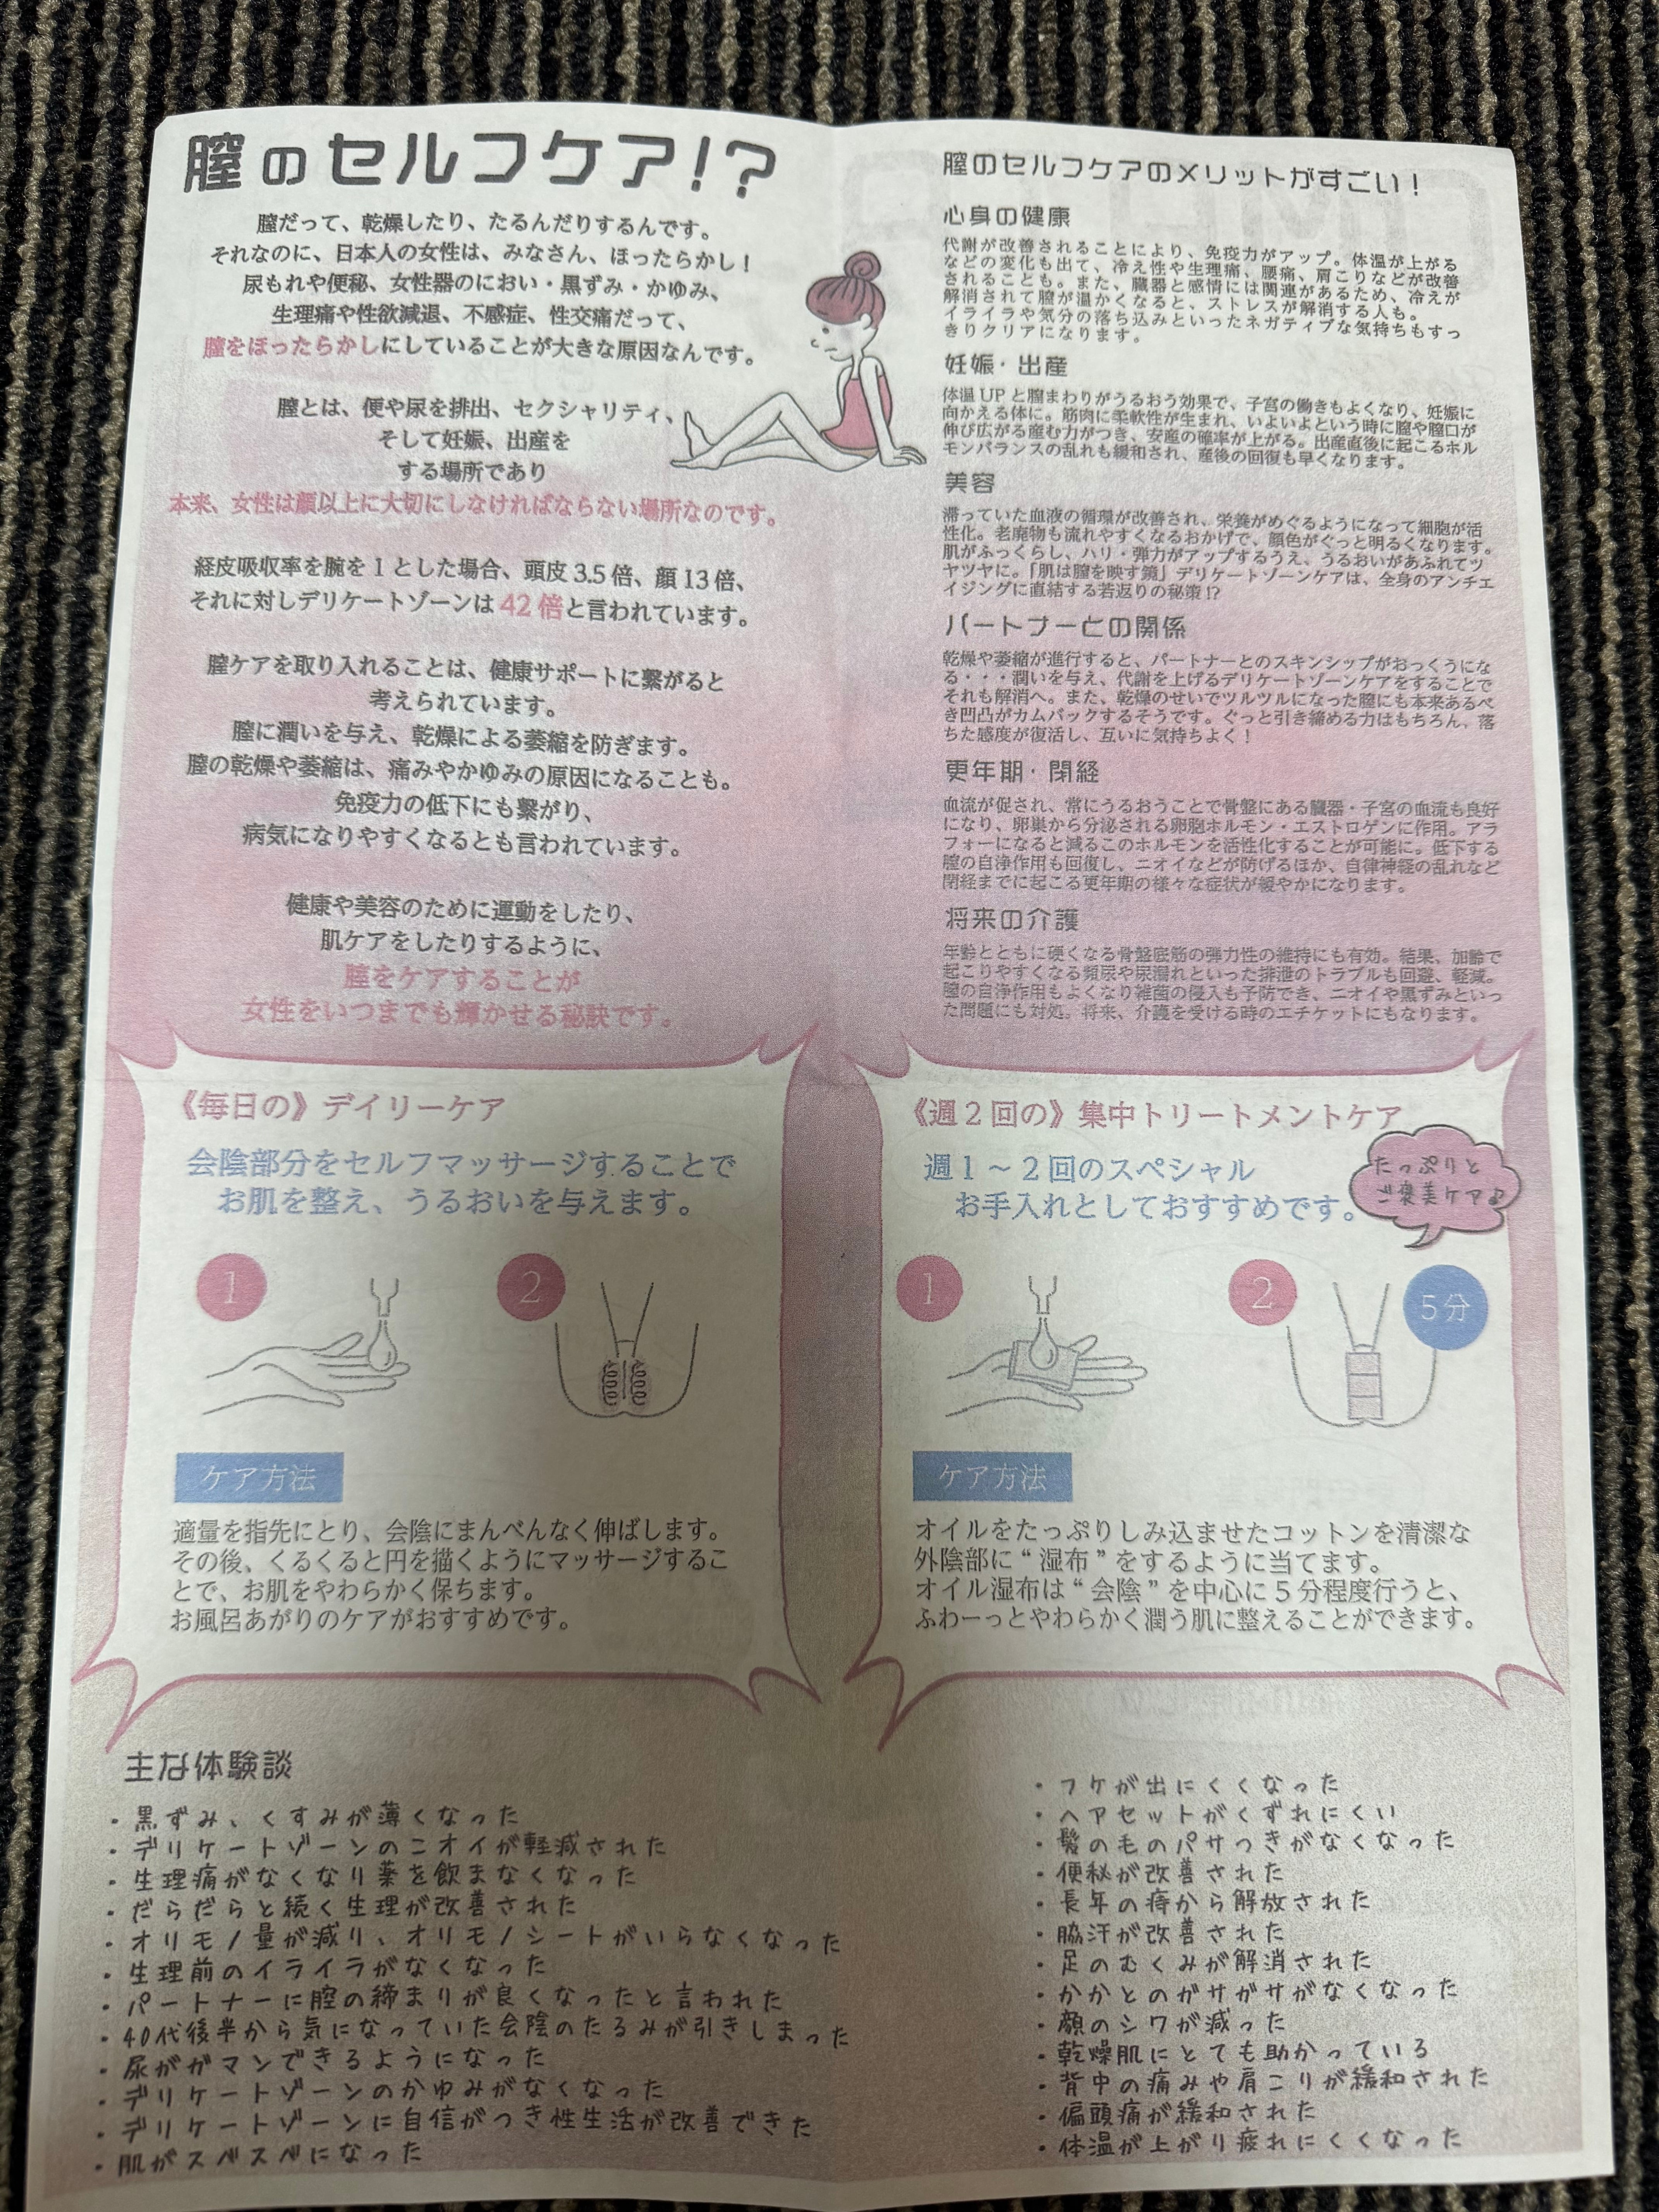 膣のセルフケア!?
膣だって、乾燥したり、たるんだりするんです。
それなのに、日本人の女性は、みなさん、ほったらかし！
尿もれや便秘、女性器のにおい・黒ずみ・かゆみ、
生理痛や性欲減退、不感症、性交痛だって、
膣をほったらかしにしていることが大きな原因なんです。
膣とは、便や尿を排出、セクシャリティ、
そして妊娠、出産を
する場所であり
本来、女性は顔以上に大切にしなければならない場所なのです。
経皮吸収率を腕を1とした場合、頭皮3.5倍、顔13倍、
それに対しデリケートゾーンは42倍と言われています。
膣ケアを取り入れることは、健康サポートに繋がると
考えられています。
膣に潤いを与え、乾燥による萎縮を防ぎます。
膣の乾燥や萎縮は、痛みやかゆみの原因になることも。
免疫力の低下にも繋がり、
病気になりやすくなるとも言われています。
健康や美容のために運動をしたり、
肌ケアをしたりするように、
膣をケアすることが
女性をいつまでも輝かせる秘訣です。
膣のセルフケアのメリットがすごい！
心身の健康
代謝が改善されることにより、免疫力がアップ。体温が上がる
などの変化も出て、冷え性や生理痛、腰痛、肩こりなどが改善
されることも。また、臓器と感情には関連があるため、冷えが
解消されて膣が温かくなると、ストレスが解消する人も。
イライラや気分の落ち込みといったネガティブな気持ちもすっ
きりクリアになります。
妊娠・出産
体温UPと膣まわりがうるおう効果で、子宮の働きもよくなり、妊娠に
向かえる体に。筋肉に柔軟性が生まれ、いよいよという時に膣や膣口が
伸び広がる産む力がつき、安産の確率が上がる。出産直後に起こるホル
モンバランスの乱れも緩和され、産後の回復も早くなります。
美容
滞っていた血液の循環が改善され、栄養がめぐるようになって細胞が活
性化。老廃物も流れやすくなるおかげで、顔色がぐっと明るくなります。
肌がふっくらし、ハリ・弾力がアップするうえ、うるおいがあふれてツ
ヤツヤに。「肌は膣を映す鏡」デリケートゾーンケアは、全身のアンチエ
イジングに直結する若返りの秘策!?
パートナーとの関係
乾燥や萎縮が進行すると、パートナーとのスキンシップがおっくうにな
る・・・潤いを与え、代謝を上げるデリケートゾーンケアをすることで
それも解消へ。また、乾燥のせいでツルツルになった膣にも本来あるべ
き凹凸がカムバックするそうです。ぐっと引き締める力はもちろん、落
ちた感度が復活し、互いに気持ちよく！
更年期・閉経
血流が促され、常にうるおうことで骨盤にある臓器・子宮の血流も良好
になり、卵巣から分泌される卵胞ホルモン・エストロゲンに作用。アラ
フォーになると減るこのホルモンを活性化することが可能に。低下する
膣の自浄作用も回復し、ニオイなどが防げるほか、自律神経の乱れなど
閉経までに起こる更年期の様々な症状が緩やかになります。
将来の介護
年齢とともに硬くなる骨盤底筋の弾力性の維持にも有効。結果、加齢で
起こりやすくなる頻尿や尿漏れといった排泄のトラブルも回避、軽減。
膣の自浄作用もよくなり雑菌の侵入も予防でき、ニオイや黒ずみといっ
た問題にも対処。将来、介護を受ける時のエチケットにもなります。
《毎日の》デイリーケア
会陰部分をセルフマッサージすることで
お肌を整え、うるおいを与えます。
1
2
ケア方法
適量を指先にとり、会陰にまんべんなく伸ばします。
その後、くるくると円を描くようにマッサージするこ
とで、お肌をやわらかく保ちます。
お風呂あがりのケアがおすすめです。
《週2回の》集中トリートメントケア
週1～2回のスペシャル
お手入れとしておすすめです。
たっぷりと
ご褒美ケア♪
1
2
5分
ケア方法
オイルをたっぷりしみ込ませたコットンを清潔な
外陰部に“湿布”をするように当てます。
オイル湿布は“会陰”を中心に5分程度行うと、
ふわーっとやわらかく潤う肌に整えることができます。
主な体験談
・黒ずみ、くすみが薄くなった
・デリケートゾーンのニオイが軽減された
・生理痛がなくなり薬を飲まなくなった
・だらだらと続く生理が改善された
・オリモノ量が減り、オリモノシートがいらなくなった
・生理前のイライラがなくなった
・パートナーに膣の締まりが良くなったと言われた
・40代後半から気になっていた会陰のたるみが引きしまった
・尿がガマンできるようになった
・デリケートゾーンのかゆみがなくなった
・デリケートゾーンに自信がつき性生活が改善できた
・肌がスベスベになった
・フケが出にくくなった
・ヘアセットがくずれにくい
・髪の毛のパサつきがなくなった
・便秘が改善された
・長年の痔から解放された
・脇汗が改善された
・足のむくみが解消された
・かかとのガサガサがなくなった
・顔のシワが減った
・乾燥肌にとても助かっている
・背中の痛みや肩こりが緩和された
・偏頭痛が緩和された
・体温が上がり疲れにくくなった